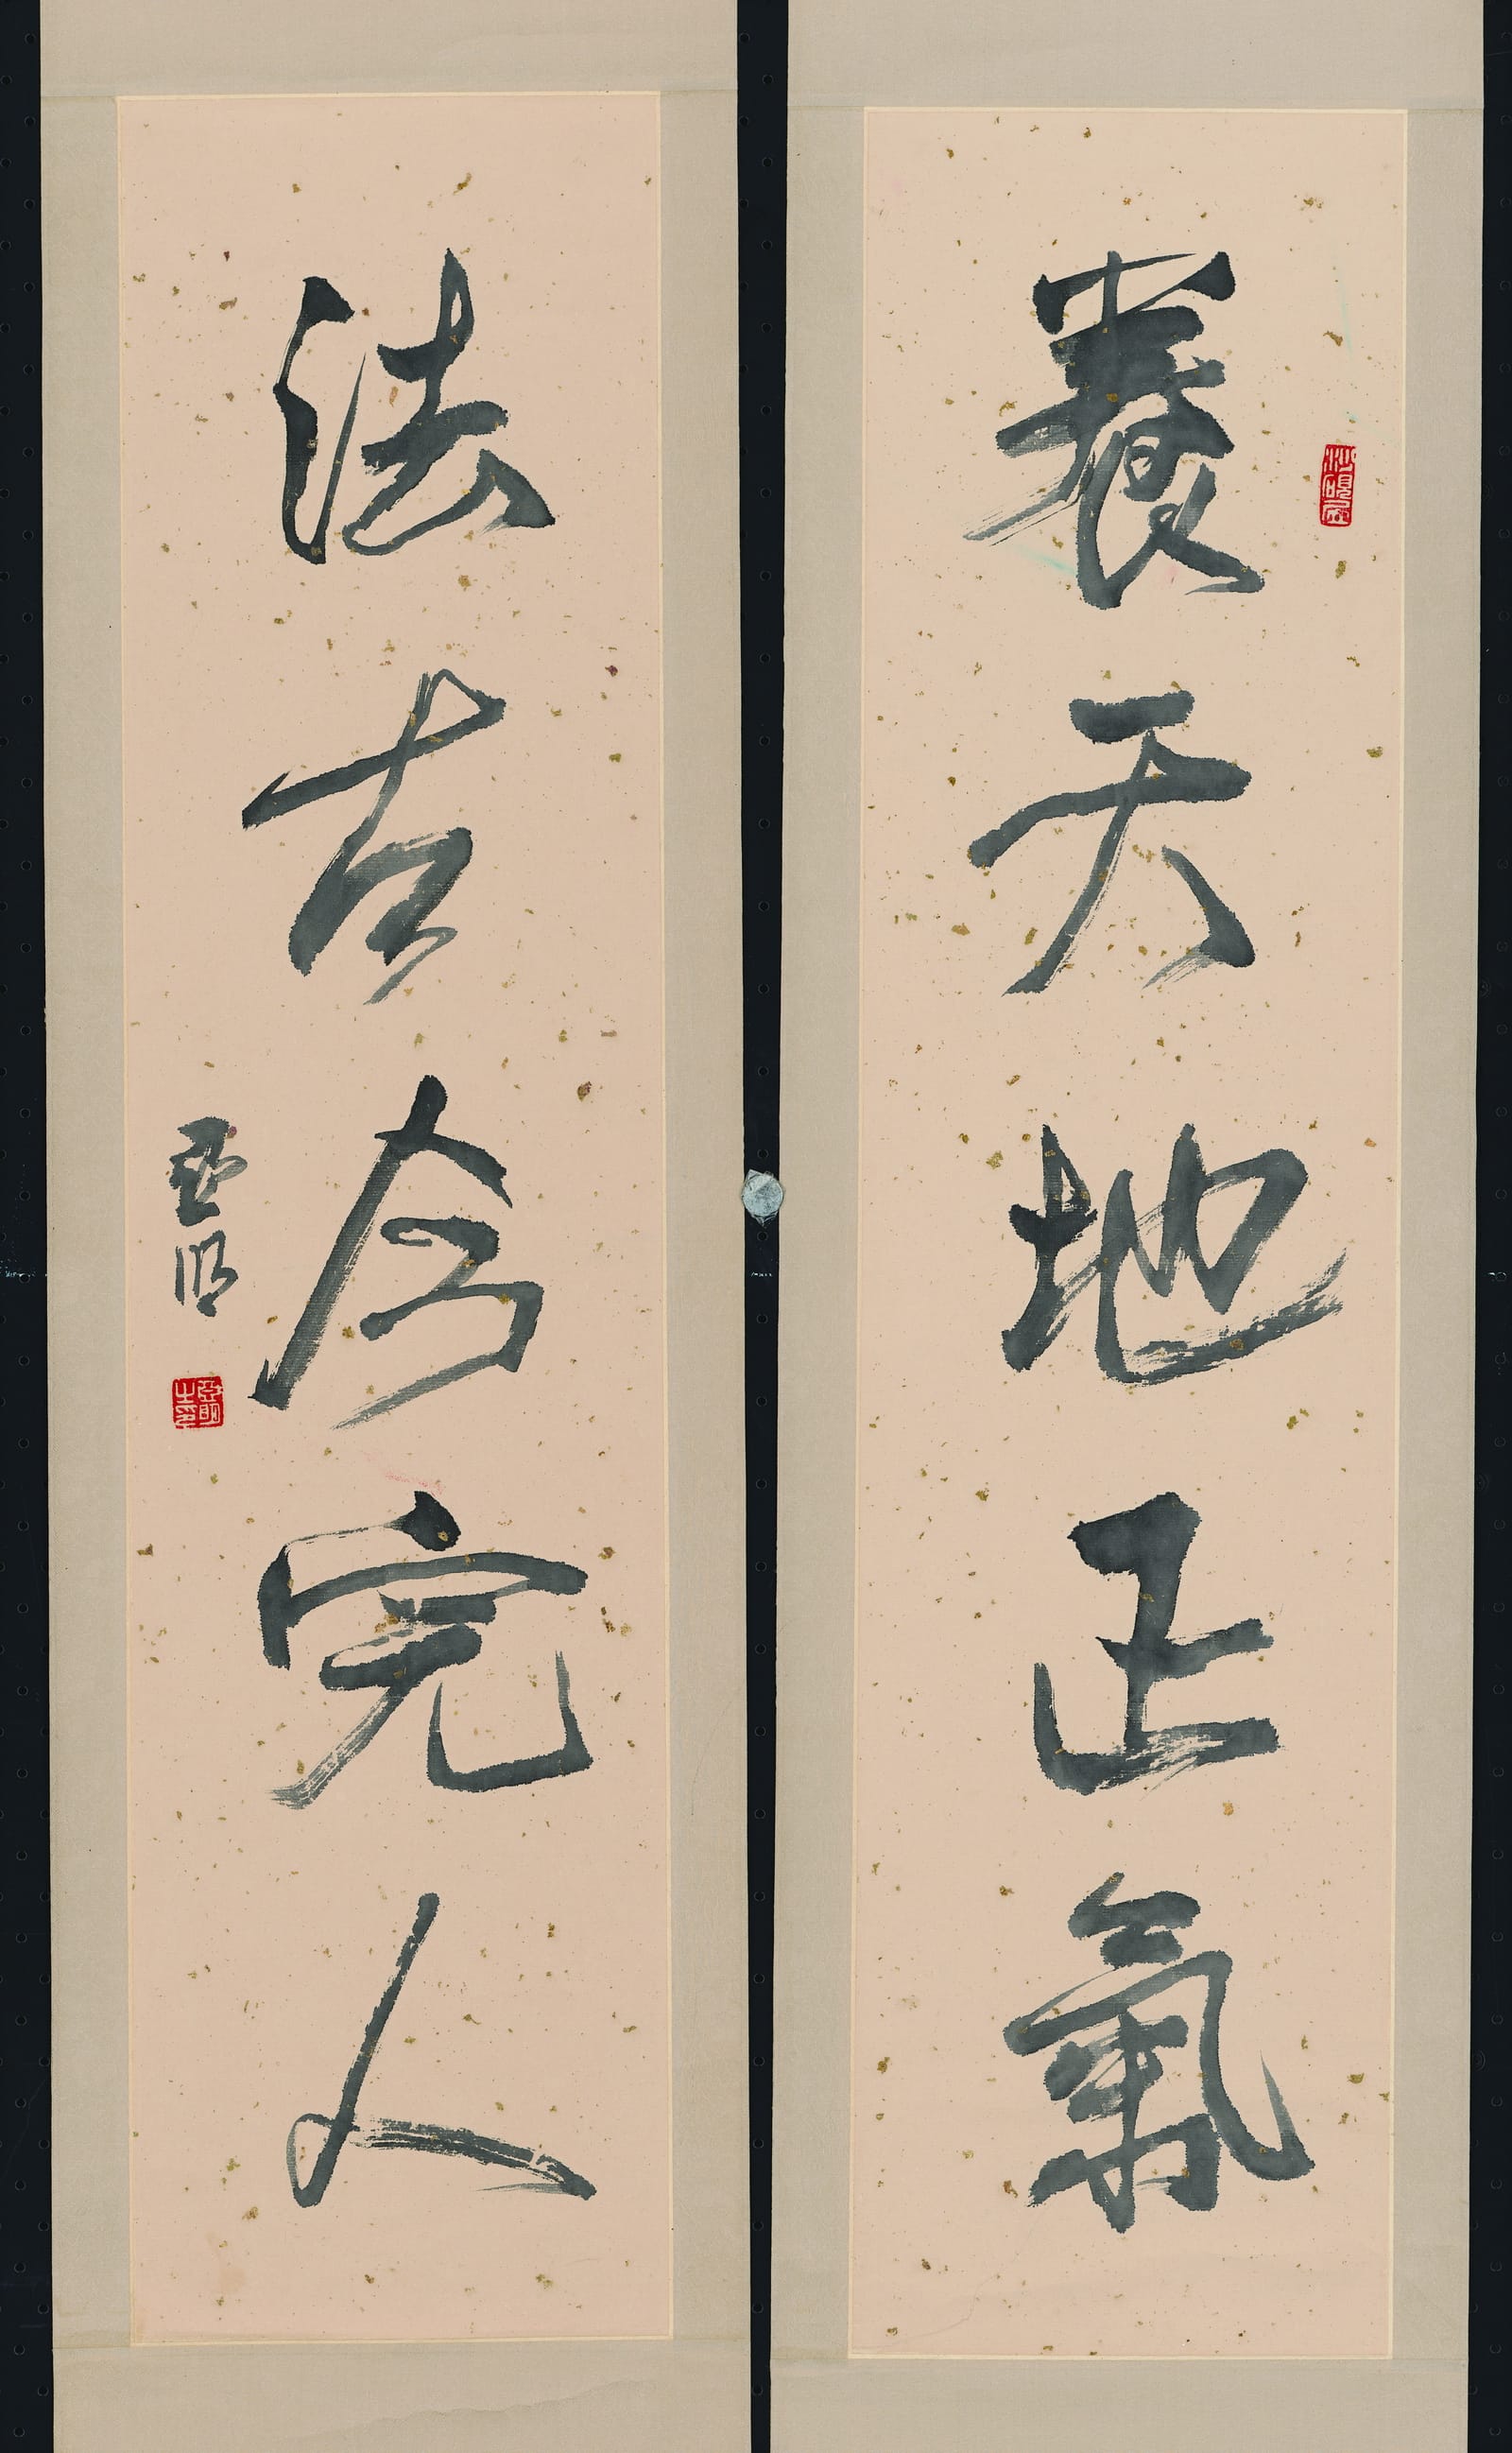 養天地正氣
法古今完人
亞明